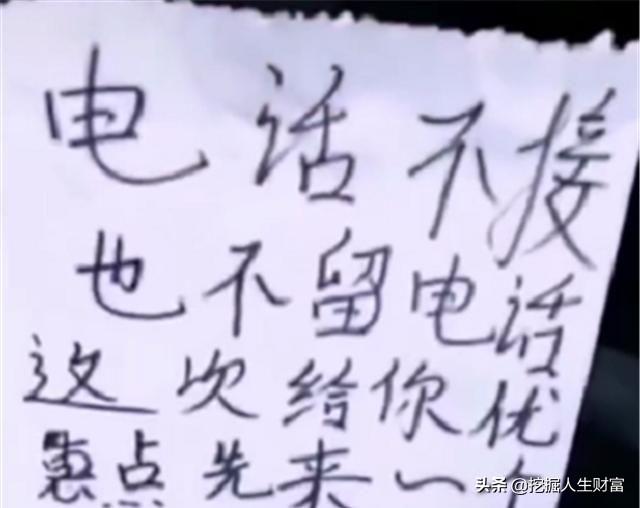 电话不接
也不留电话
这次给你优
惠点先来一个
头条 @挖掘人生财富